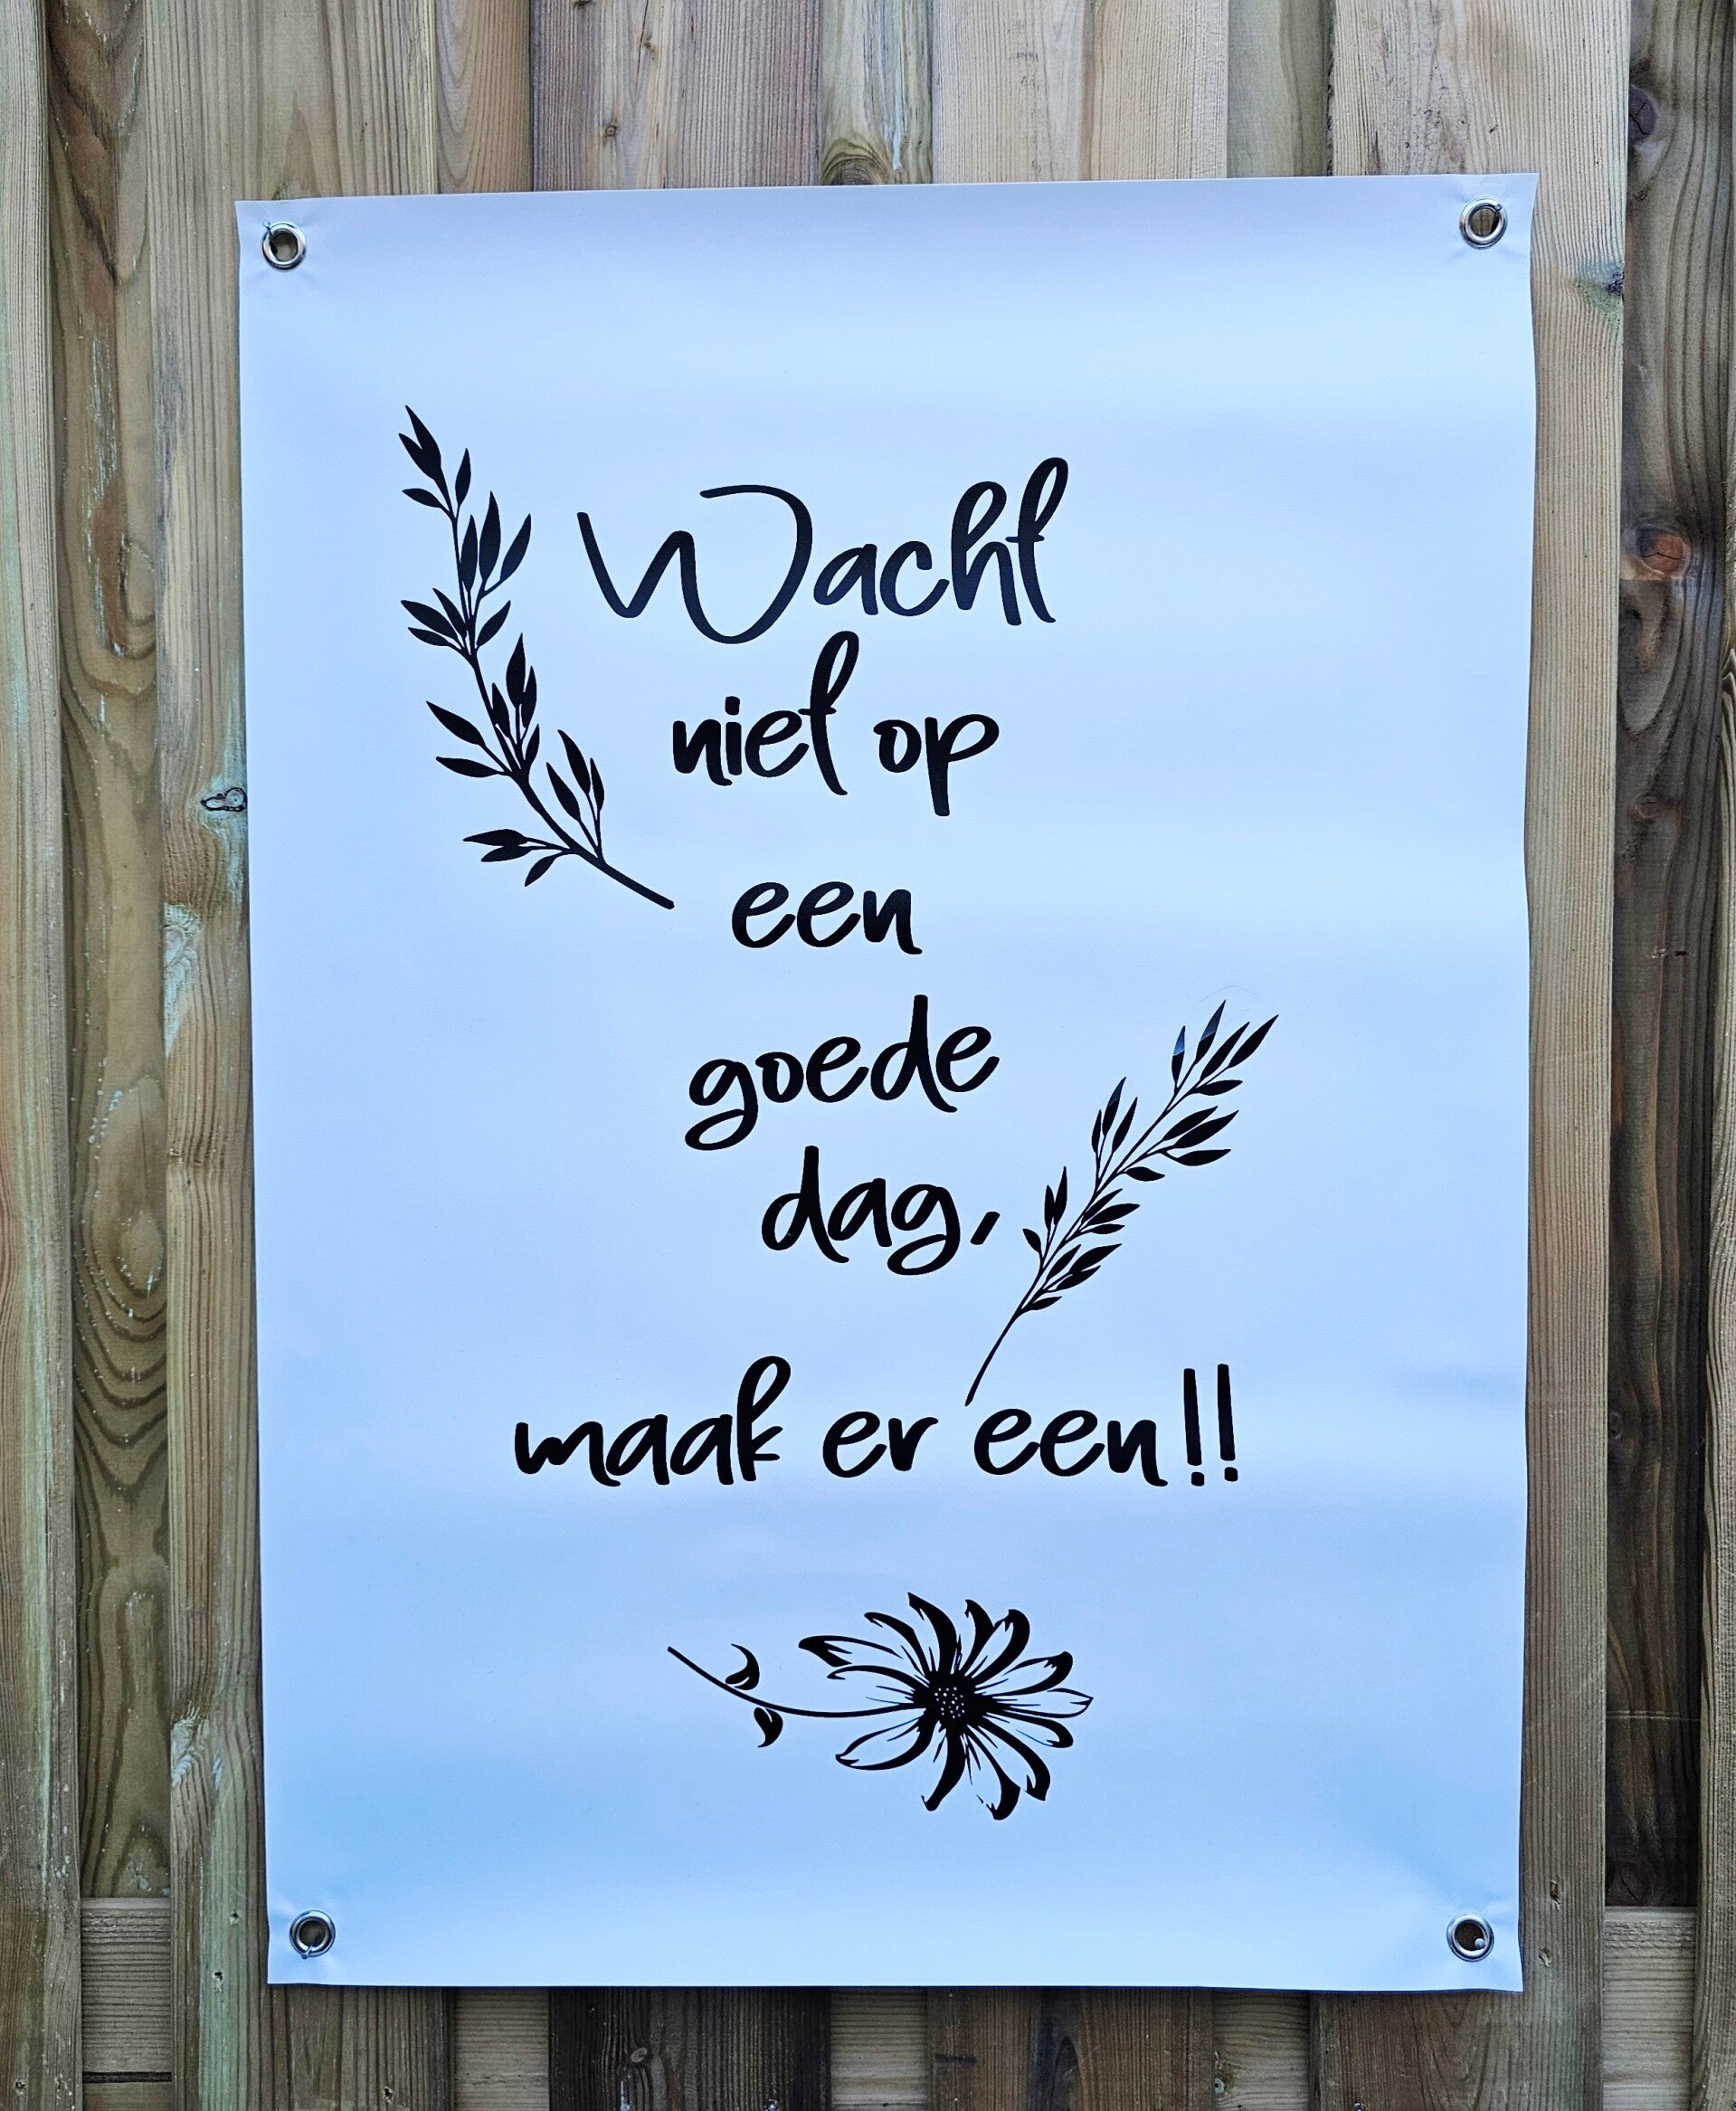 Wacht
niet op
een
goede
dag,
maak er een!!